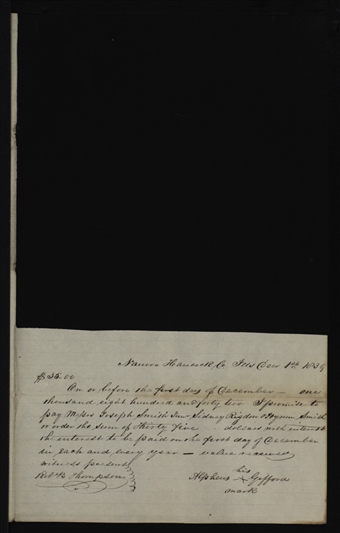 Nauvoo Hancock Co Ills Decr 1st 1839
$35.00
On or before the first day of December — one
thousand eight hundred and forty two I promise to
pay Messrs Joseph Smith Junr Sidney Rigdon & Hyrum Smith
or order the sum of Thirty five dollars with interest
the interest to be paid on the first day of December
in each and every year — value received
witness present
his
Alpheus × Gifford
mark
Robt B Thompson